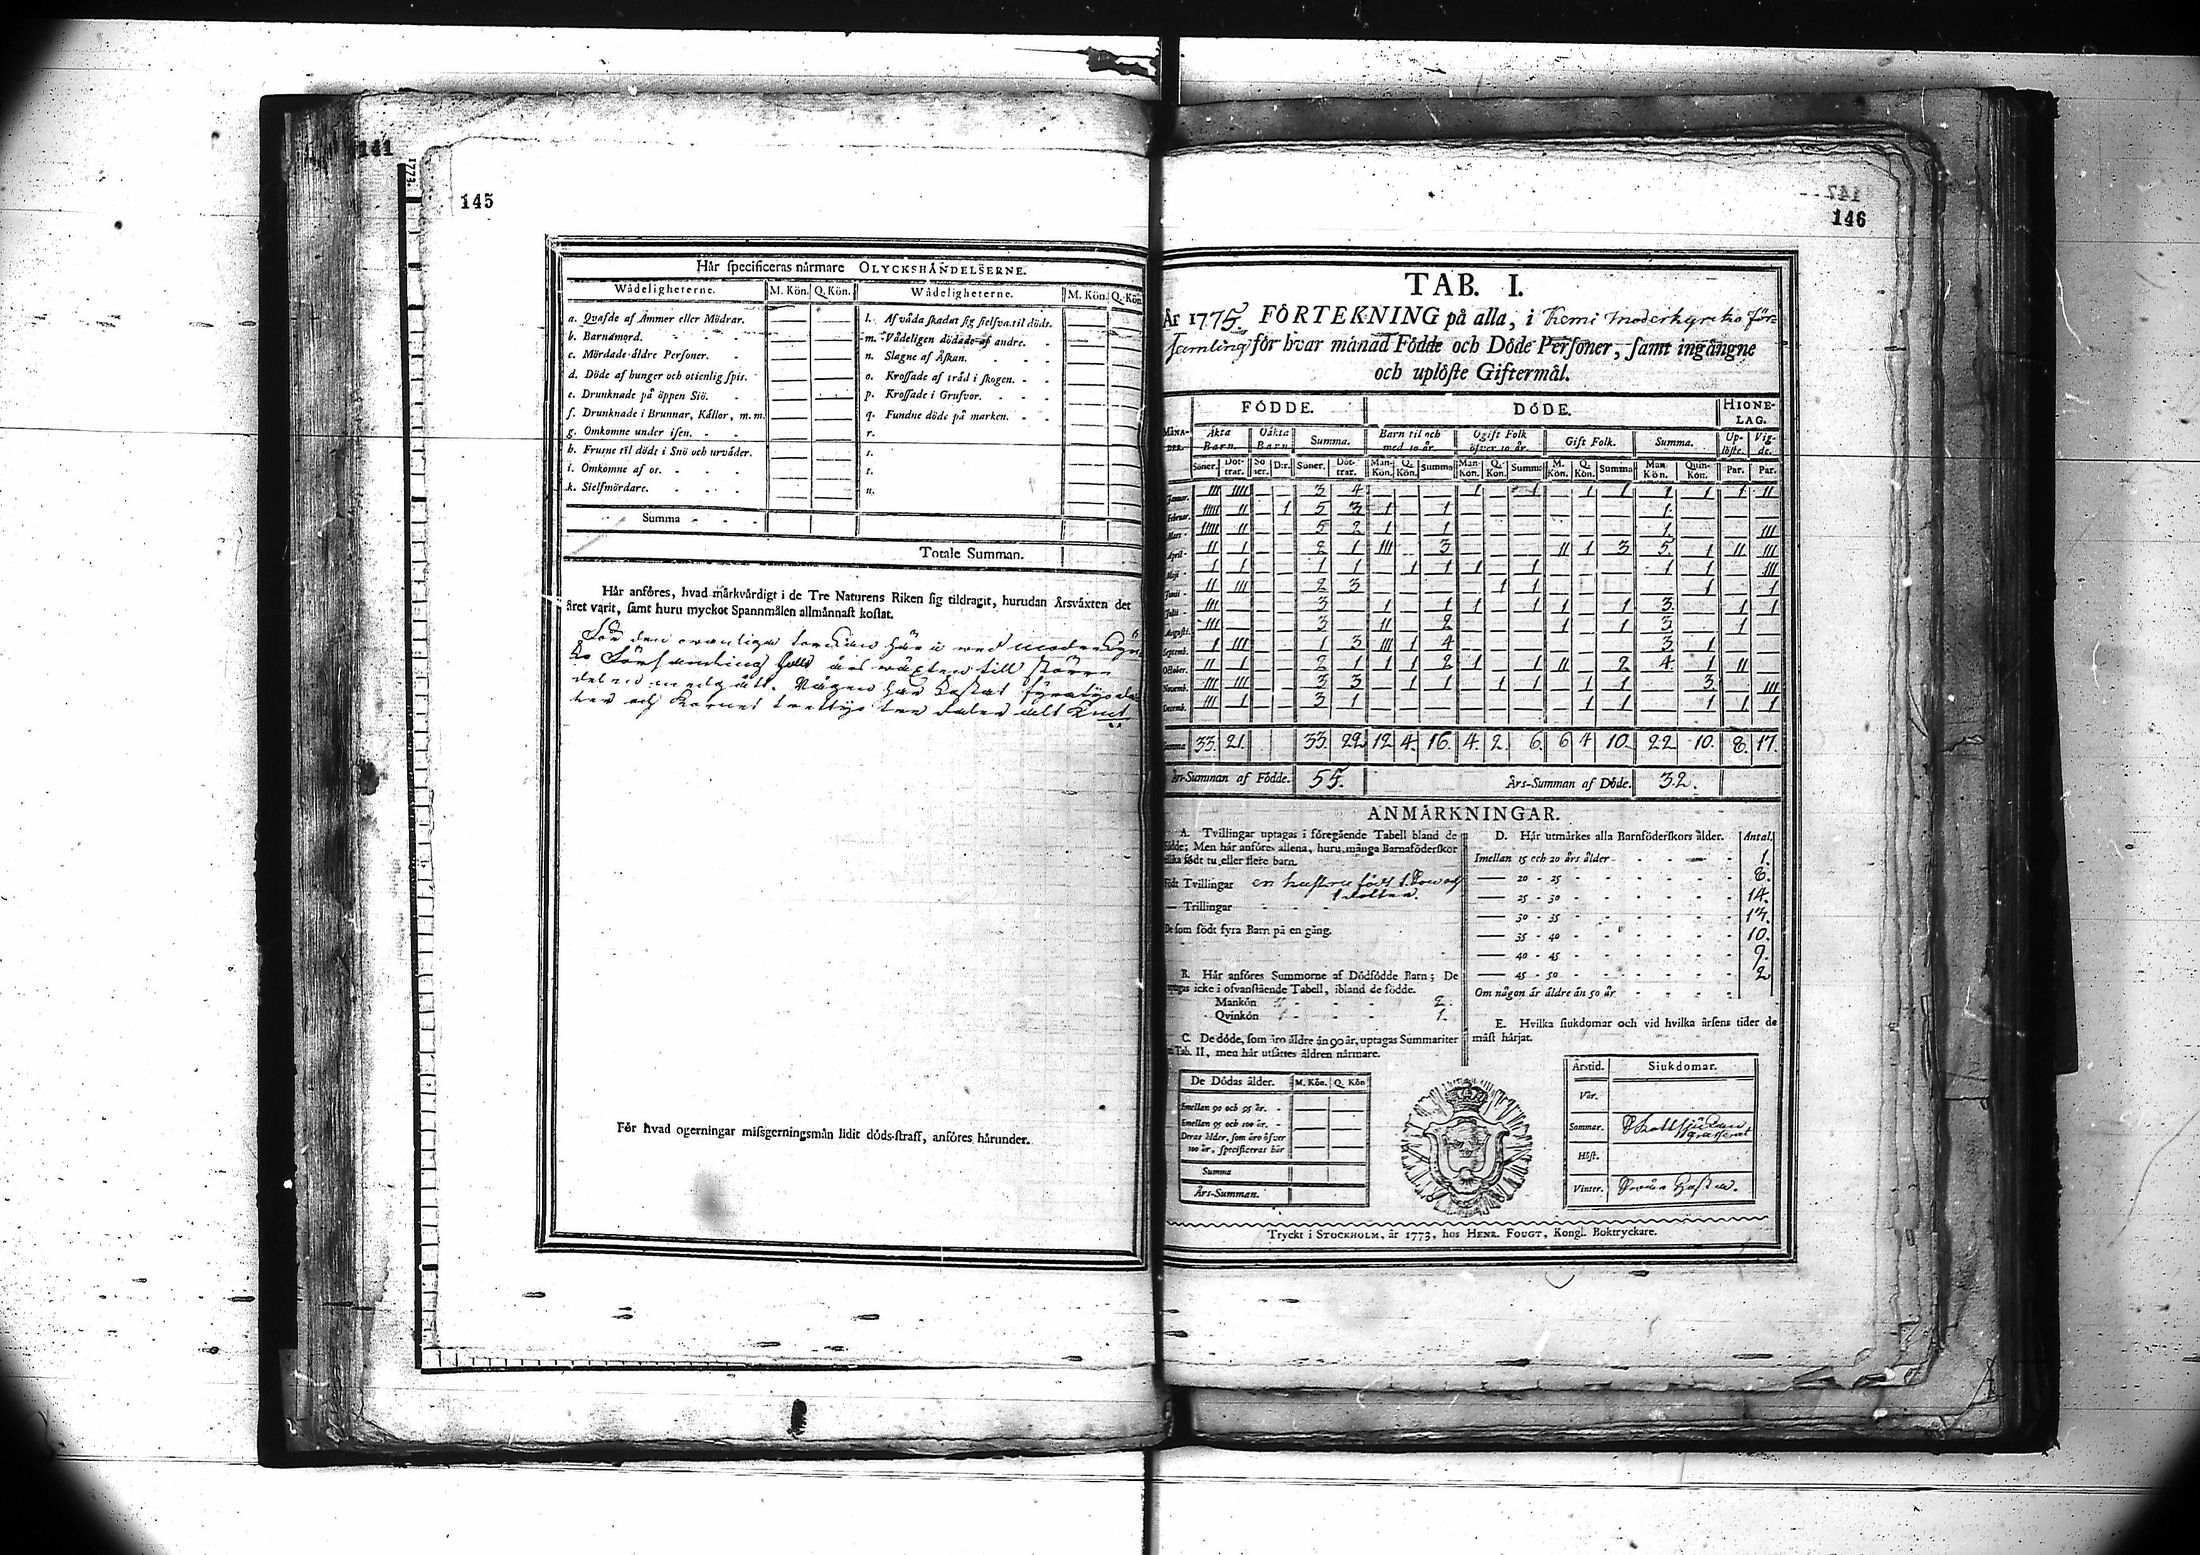 141
1773.
145
Hår specificeras nårmare OLYCKSHÅNDELSERNE.
Wådeligheterne. M. Kön. Q. Kön. Wådeligheterne. M. Kön. Q. Kön
a. Qvafde af Ammer eller Mödrar. — — l. Af våda skadat sig sielfva til döds. — —
b. Barnamord. — — m. Vådeligen dödade af andre. — —
c. Mördade åldre Personer. — — n. Slagne af Åskan. — —
d. Döde af hunger och otienlig spis. — — o. Krossade af tråd i skogen. — —
e. Drunknade på öppen Siö. — — p. Krossade i Grufvor. — —
f. Drunknade i Brunnar, Kållor, m. m. — — q. Fundne döde på marken. — —
g. Omkomne under isen. — — r.
h. Frusne til döds i Snö och urvåder. — — s.
i. Omkomne af os. — — t.
k. Sielfmördare. — — u.
Summa
Totale Summan.
Hår anföres, hvad mårkvårdigt i de Tre Naturens Riken sig tildragit, hurudan Årsvåxten det
året varit, samt huru myckot Spannmålen allmånnast kostat.
För den ovanliga torckan här i ved moderkyr
ko Församling årsväxten till större
delen Rågen har kostat fyratijo da
ler och Kornet trettijo tre daler alt Kmt
För hvad ogerningar missgerningsmån lidit döds-straff, anföres hårunder.
147
146
TAB. I.
År 1775. FÖRTEKNING på alla, i Kemi Moderkyrko för-
samling för hvar månad Födde och Döde Personer, samt ingångne
och uplöste Giftermål.
FÖDDE. DÖDE. HIONE-LAG.
MÅNA-DER. Åkta Barn. Oåkta Barn. Summa. Barn til och med 10 år. Ogift Folk öfver 10 år. Gift Folk. Summa. Up-löste. Vig-de.
Söner. Döt-trar. Sö ner. D:r. Söner. Döt-trar. Man-Kön. Q. Kön. Summa Man-Kön. Q. Kön. Summa M. Kön. Q. Kön. Summa Man Kön. Quin-Kön. Par. Par.
Januar. III IIII — — 3 4 — — — 1 — 1 — 1 1 1 1 1 II
Februar. IIIII II — 1 5 3 1 — 1 — — — — — — 1 — — —
Mars IIIII II — — 5 2 1 — 1 — — — — — — 1 — — III
April II 1 — — 2 1 III — 3 — — — II 1 3 5 1 II III
Maji 1 1 — — 1 1 — 1 1 1 — 1 — — — 1 1 — III
Junii II III — — 2 3 — — — — 1 1 — — — — 1 — 1
Julii III — — — 3 — 1 — 1 1 — 1 1 — 1 3 — 1 1
Augusti. III — — — 3 — II — 2 — — — 1 — 1 3 — 1 —
Septemb. 1 III — — 1 3 III 1 4 — — — — — — 3 1 — —
October. II 1 — — 2 1 1 1 2 1 — 1 II — 2 4 1 II —
Novemb. III III — — 3 3 — 1 1 — 1 1 — 1 1 — 3 — III
Decemb. III 1 — — 3 1 — — — — — — — 1 1 — 1 1 1
Summa 33. 21. 33. 22. 12 4. 16. 4. 2. 6. 6 4 10. 22 10. 8. 17.
Års-Summan af Födde. 55. Års-Summan af Döde. 32.
ANMÅRKNINGAR.
A. Tvillingar uptagas i föregående Tabell bland de
födde; Men hår anföres allena, huru många Barnaföderskor
ölika födt tu eller flere barn.
Födt Tvillingar en hustru födt 1. Son och
1 dotter.
— Trillingar
De som födt fyra Barn på en gång.
B. Hår anföres Summorne af Dödfödde Barn; De
uptagas icke i ofvanstående Tabell, ibland de födde.
Mankön 2.
Qvinkön 1.
C. De döde, som åro åldre ån 90 år, uptagas Summariter
i Tab. II, men hår utsåttes åldren nårmare.
De Dödas ålder. M. Kön. Q. Kön
Emellan 90 och 95 år. — —
Emellan 95 och 100 år. — —
Deras ålder, som åro öfver
100 år, specificeras hår — —
Summa
Års-Summan.
D. Hår utmårkes alla Barnföderskors ålder. Antal.
Imellan 15 och 20 års ålder 1.
— 20 - 25 8.
— 25 - 30 14.
— 30 - 35
— 35 - 40 10.
— 40 - 45 9.
— 45 - 50 2
Om någon år åldre ån 50 år
E. Hvilka siukdomar och vid hvilka årsens tider de
måst hårjat.
Årstid. Siukdomar.
Vår.
Sommar.
grasserat
Höst.
Vinter. Svåra Hostan.
Tryckt i STOCKHOLM, år 1773, hos HENR. FOUGT, Kongl. Boktryckare.